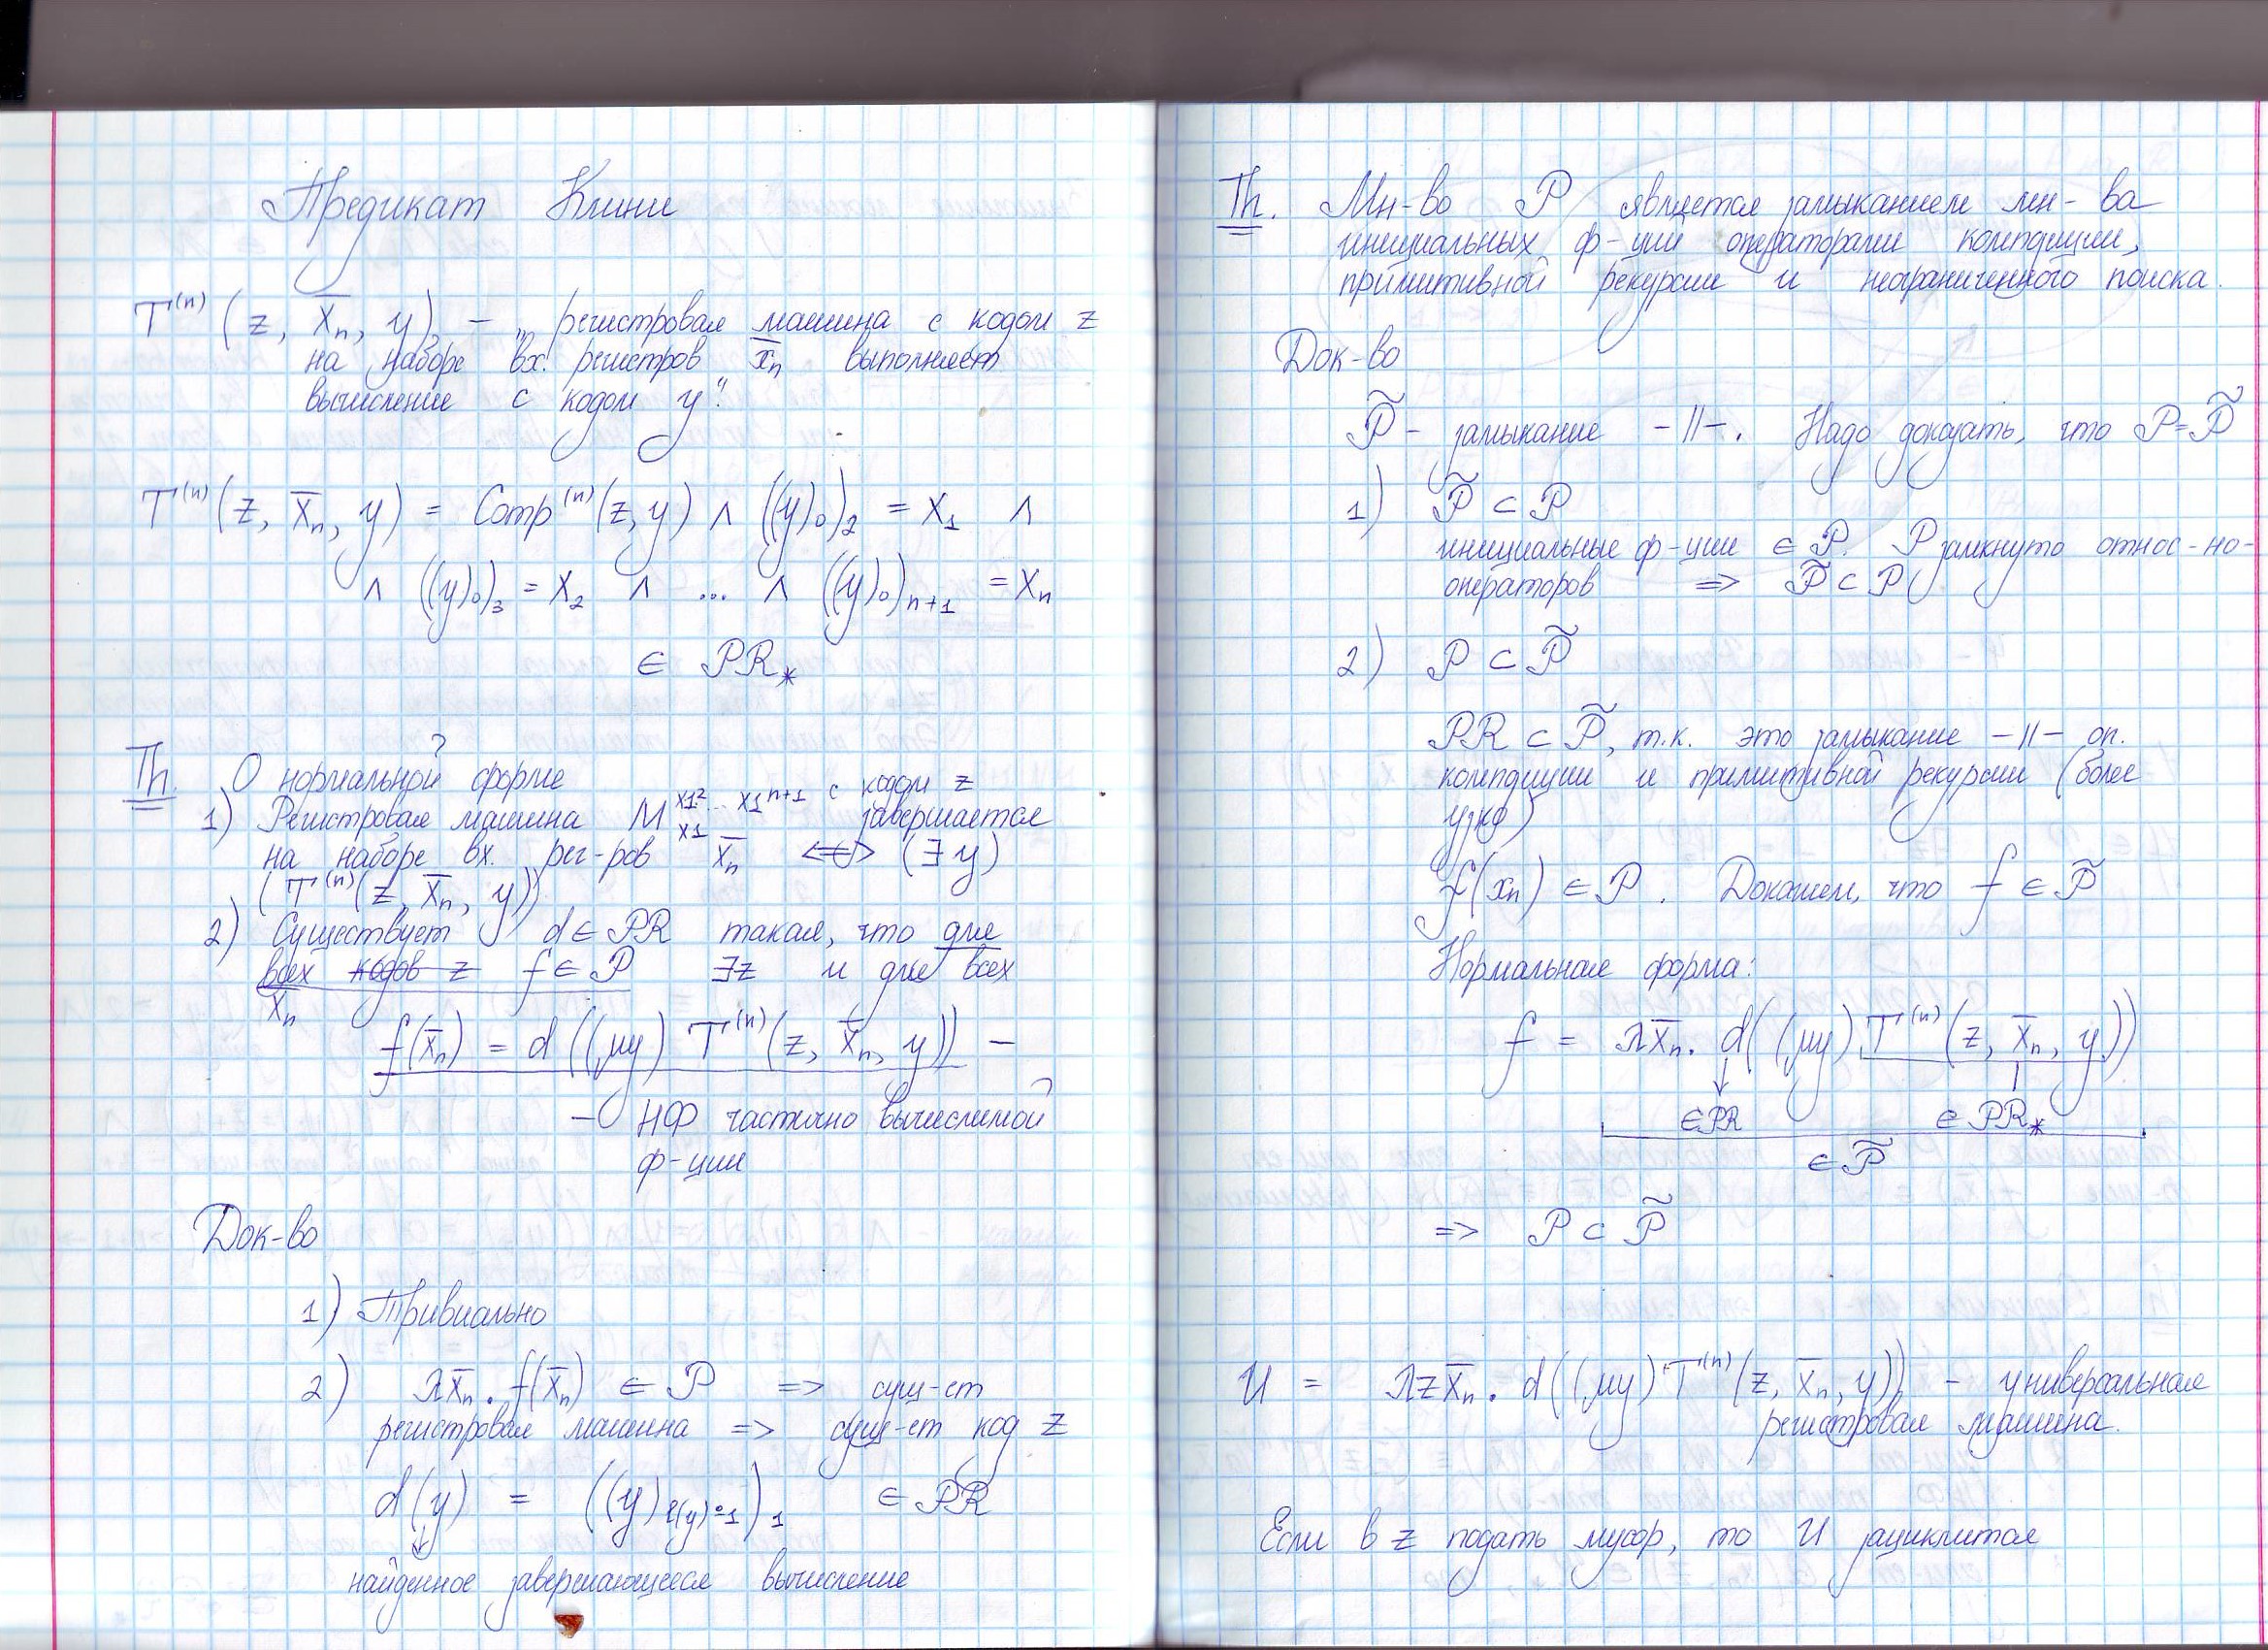 Предикат Клини
T⁽ⁿ⁾ (z, x̄ₙ, y) – „регистровая машина с кодом z
на наборе вх. регистров x̄ₙ выполняет
вычисление с кодом y“.
T⁽ⁿ⁾(z, x̄ₙ, y) = Comp⁽ⁿ⁾(z, y) ∧ ((y)₀)₂ = x₁ ∧
∧ ((y)₀)₃ = x₂ ∧ ... ∧ ((y)₀)ₙ₊₁ = xₙ
∈ PR_*
Th. О нормальной форме
1) Регистровая машина M_{X1}^{X1² ... X1ⁿ⁺¹} с кодом z завершается
на наборе вх. рег-ров x̄ₙ <=> (∃y)
(T⁽ⁿ⁾(z, x̄ₙ, y))
2) Существует d ∈ PR такая, что для
всех кодов z f ∈ P ∃z и для всех
x̄ₙ
f(x̄ₙ) = d((μy) T⁽ⁿ⁾(z, x̄ₙ, y)) –
– НФ частично вычислимой
ф-ции
Док-во
1) Тривиально
2) λx̄ₙ. f(x̄ₙ) ∈ P => сущ-ет
регистровая машина => сущ-ет код z
d(y) = ((y)_{l(y)∸1})₁ ∈ PR
↓
найденное завершающееся вычисление
Th. Мн-во P является замыканием мн-ва
инициальных ф-ций операторами компзиции,
примитивной рекурсии и неограниченного поиска.
Док-во
P̃ – замыкание –||–. Надо доказать, что P=P̃
1) P̃ ⊂ P
инициальные ф-ции ∈ P. P замкнуто относ-но-
операторов => P̃ ⊂ P
2) P ⊂ P̃
PR ⊂ P̃, т.к. это замыкание –||– оп.
компзиции и примитивной рекурсии (более
узко)
f(xₙ) ∈ P. Докажем, что f ∈ P̃
Нормальная форма:
f = λx̄ₙ. d((μy) T⁽ⁿ⁾(z, x̄ₙ, y))
∈PR ∈ PR_*
∈ P̃
=> P ⊂ P̃
U = λzx̄ₙ. d((μy) T⁽ⁿ⁾(z, x̄ₙ, y)) – универсальная
регистровая машина.
Если в z подать мусор, то U зациклится